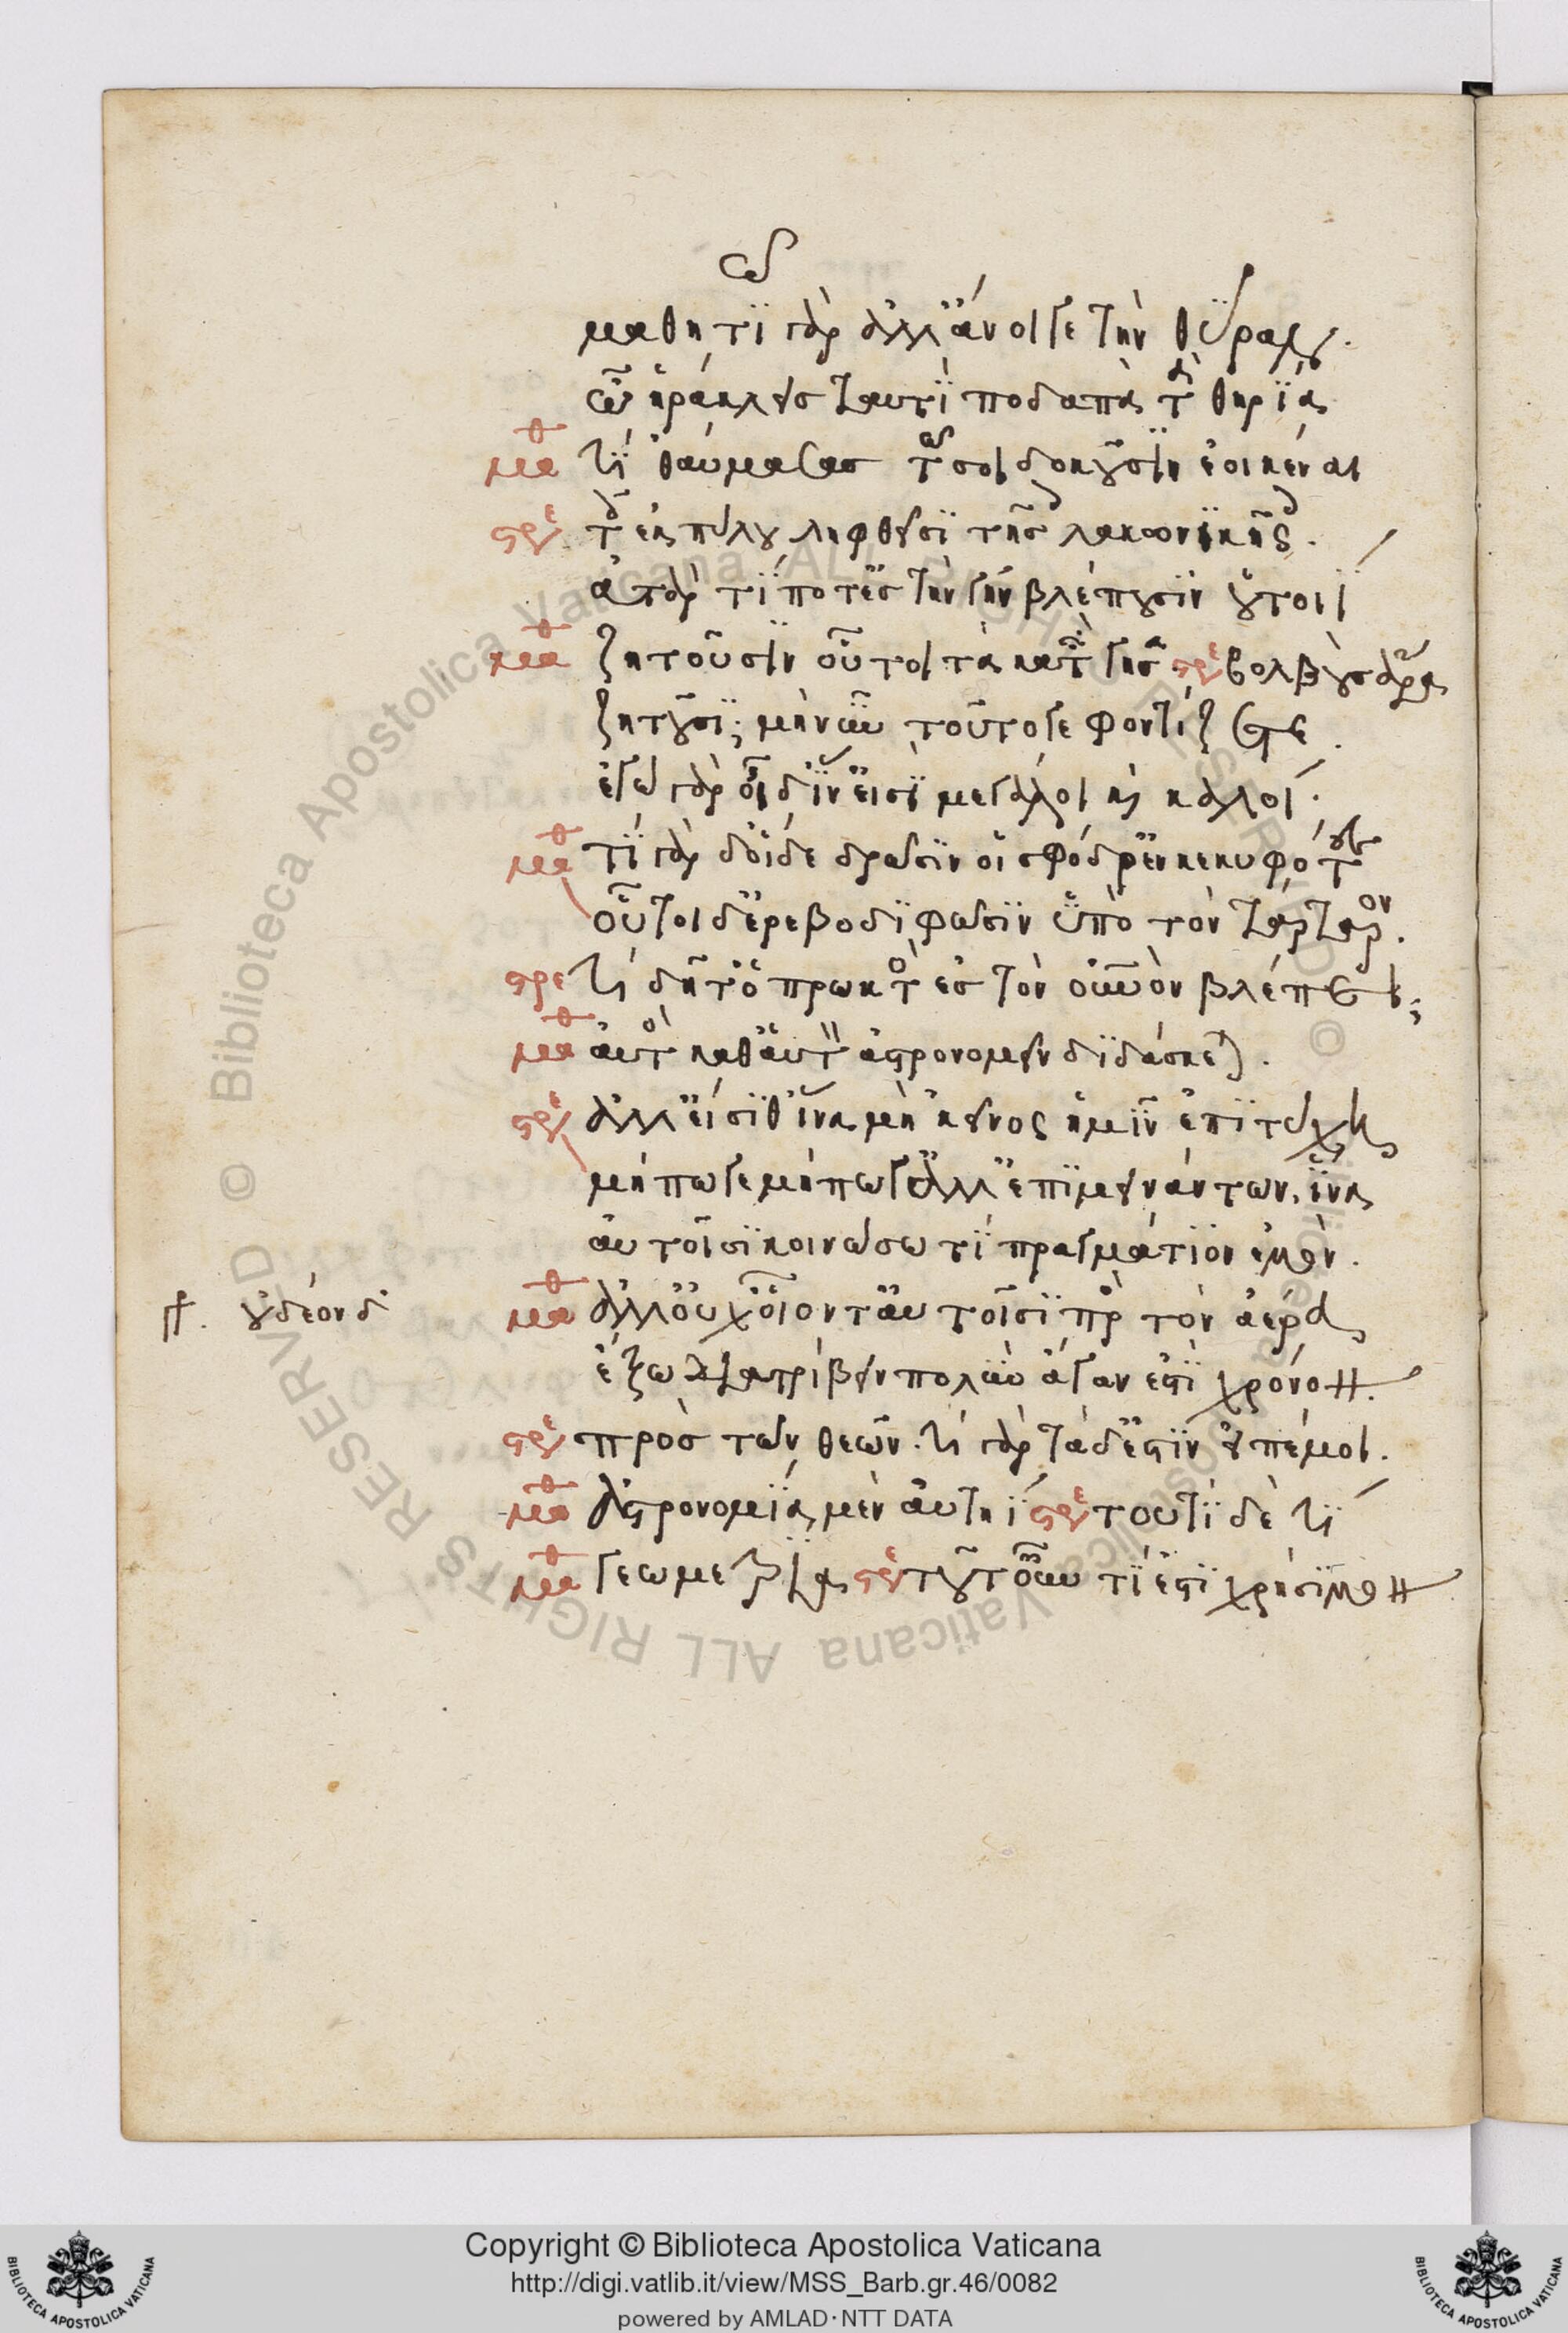 ω
μαθητιῶ γὰρ ἀλλ' ἄνοιγε τὴν θύραν.
ὦ ἡράκλεις ταυτὶ ποδαπὰ τὰ θηρία
μαθ τί ἐθαύμασας τῶ σοι δοκοῦσιν ἐοικέναι
στρε τοῖς ἐκ πύλου ληφθεῖσι τοῖς λακωνικοῖς.
ἀτὰρ τί ποτ' ἐς τὴν γῆν βλέπουσιν οὑτοιί
μαθ ζητοῦσιν οὗτοι τὰ κατὰ γῆς στρε βολβοὺς ἄρα
ζητοῦσι; μὴ νῦν τοῦτό γε φροντίζετε.
ἐγὼ γὰρ οἶδ' ἵν' εἰσὶ μεγάλοι καὶ καλοί.
μαθ τί γὰρ οἵδε δρῶσιν οἱ σφόδρ' ἐγκεκυφότες
οὗτοι δ' ἐρεβοδιφῶσιν ὑπὸ τὸν τάρταρον.
στρε τί δῆθ' ὁ πρωκτὸς ἐς τὸν οὐρανὸν βλέπει;
μαθ αὐτὸς καθ' αὑτὸν ἀστρονομεῖν διδάσκεται.
στρε ἀλλ' εἴσιθ' ἵνα μὴ κεῖνος ἡμῖν ἐπιτύχῃ
μήπω γε μήπω γ' ἀλλ' ἐπιμεινάντων, ἵνα
αὐτοῖσι κοινώσω τι πραγμάτιον ἐμόν.
γρ. οὐδέον δ'
μαθ ἀλλ' οὐχ οἷόν τ' αὐτοῖσι πρὸς τὸν ἀέρα
ἔξω διατρίβειν πολὺν ἄγαν ἐστὶ χρόνον.
στρε πρὸς τῶν θεῶν. τί γὰρ τάδ' ἐστίν εἰπέ μοι.
μαθ ἀστρονομία μὲν αὑτηί στρε τουτὶ δὲ τί
μαθ γεωμετρία στρε τοῦτ' οὖν τί ἐστι χρήσιμον
Copyright © Biblioteca Apostolica Vaticana
http://digi.vatlib.it/view/MSS_Barb.gr.46/0082
powered by AMLAD·NTT DATA